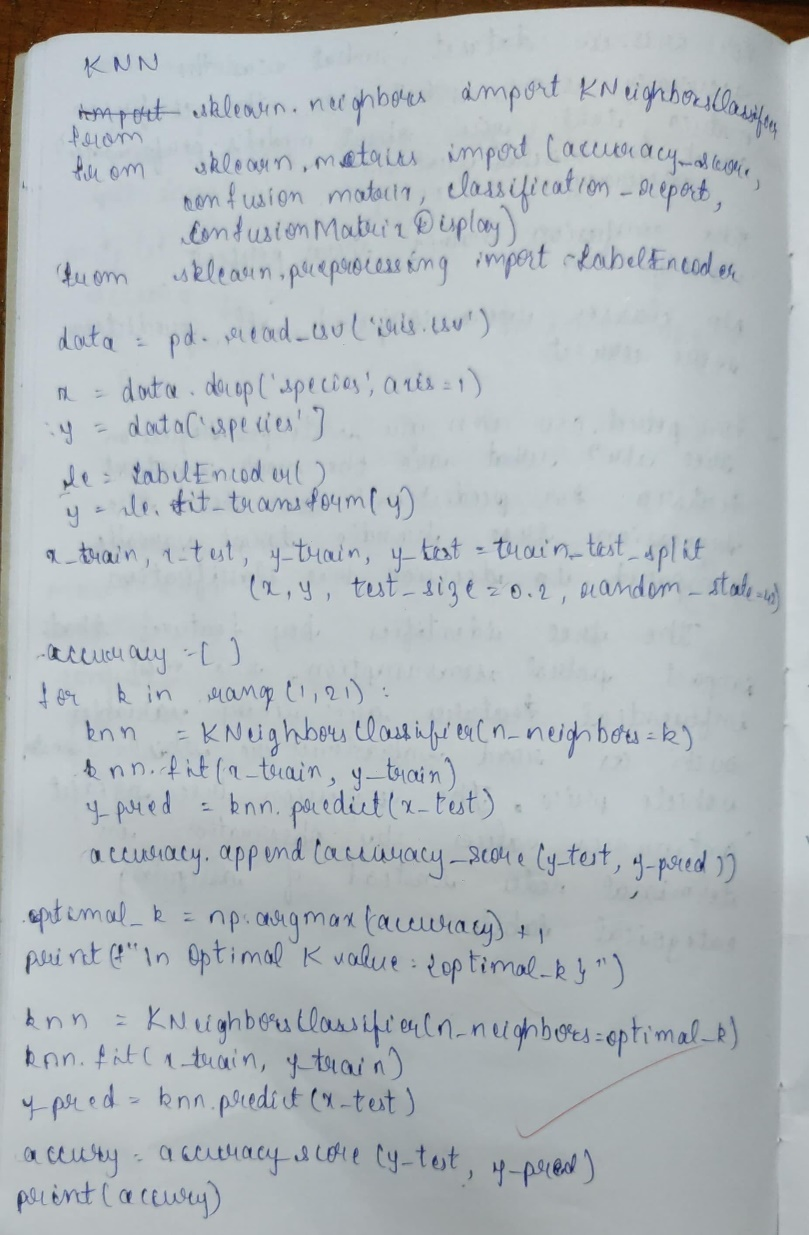 KNN
import sklearn.neighbors import KNeighborsClassifier
from
from sklearn.metrics import (accuracy_score,
confusion matrix, classification_report,
ConfusionMatrix Display)
from sklearn.preprocessing import LabelEncoder
data = pd.read_csv('iris.csv')
x = data.drop('species', axis=1)
y = data['species']
le = LabelEncoder()
y = le.fit_transform(y)
x_train, x_test, y_train, y_test = train_test_split
(x, y, test_size = 0.2, random_state=42)
accuracy = [ ]
for k in range (1,21) :
knn = KNeighborsClassifier(n_neighbors=k)
knn.fit(x_train, y_train)
y_pred = knn.predict(x_test)
accuracy.append(accuracy_score(y_test, y_pred))
optimal_k = np.argmax(accuracy) + 1
print(f"\n Optimal K value : {optimal_k}")
knn = KNeighborsClassifier(n_neighbors=optimal_k)
knn.fit(x_train, y_train)
y_pred = knn.predict(x_test)
accury = accuracy_score(y_test, y_pred)
print(accury)